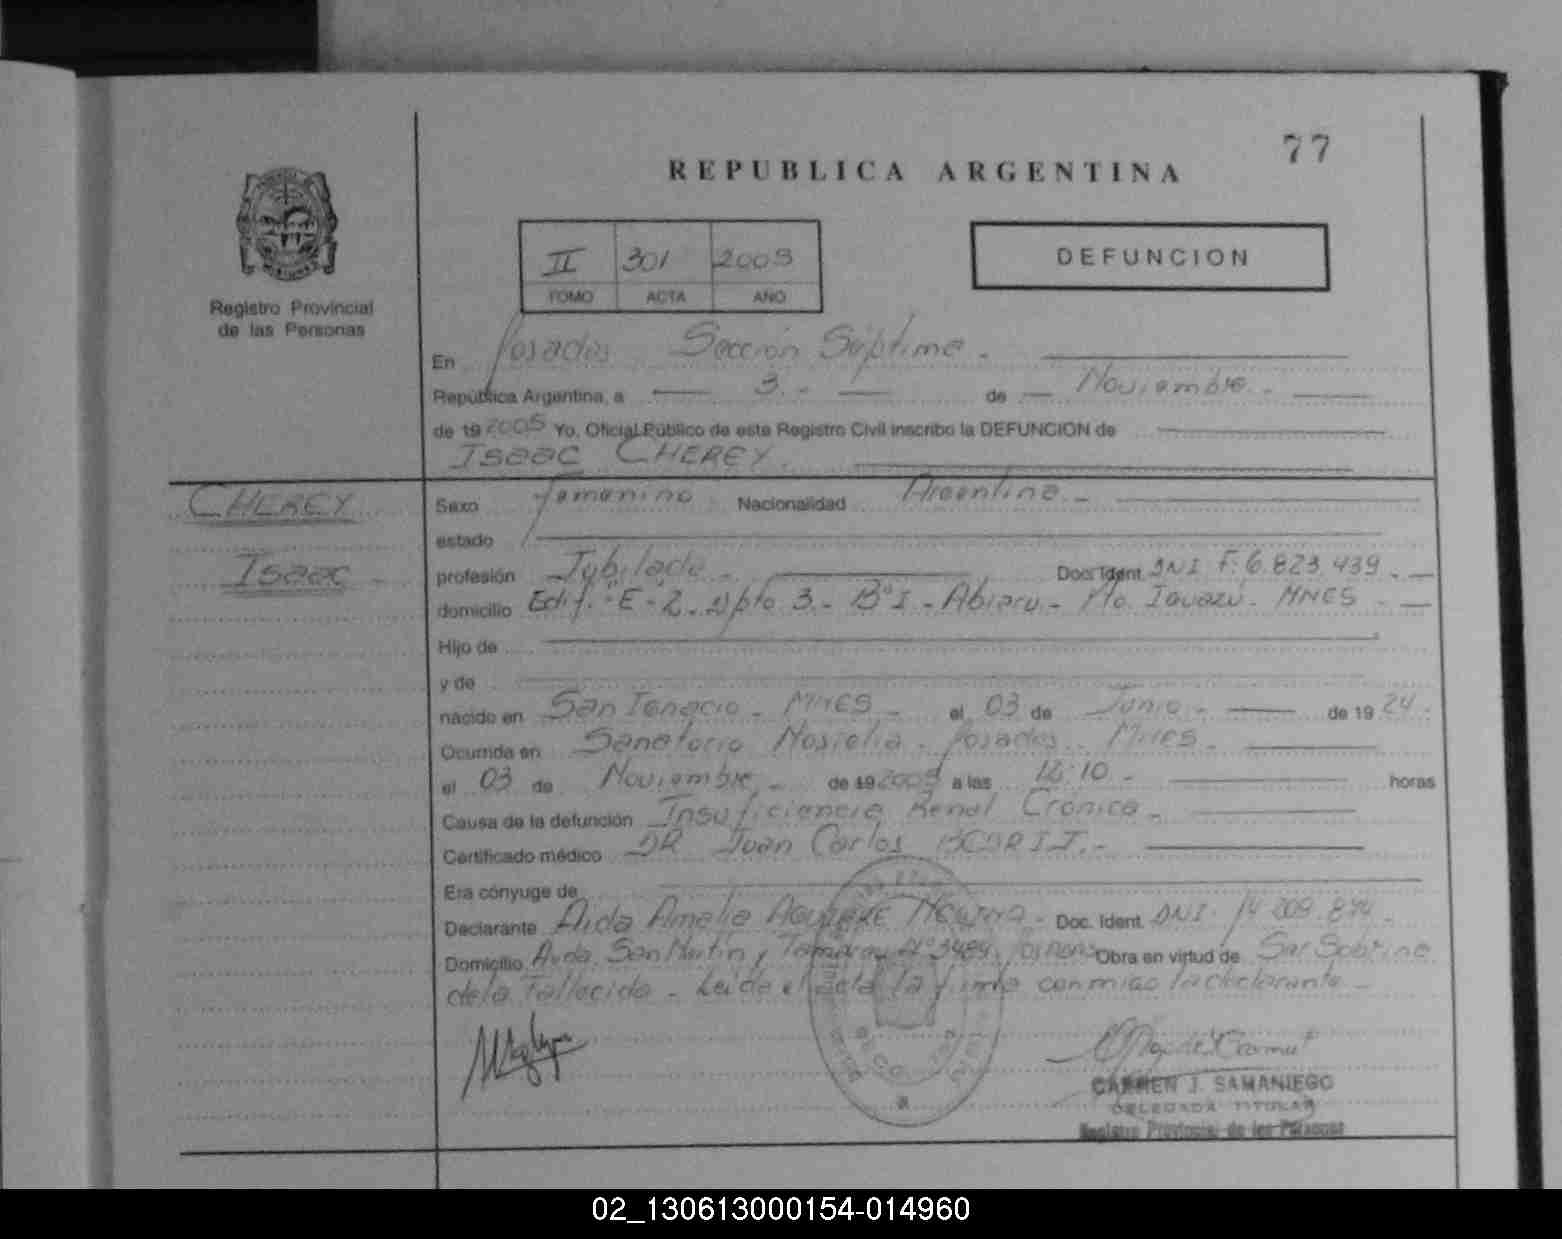 77
REPUBLICA ARGENTINA
II 301 2005
TOMO ACTA AÑO
DEFUNCION
Registro Provincial
de las Personas
En Posadas Sección Séptima.-
República Argentina, a 3.- de Noviembre.-
de 19 2005 Yo, Oficial Público de este Registro Civil inscribo la DEFUNCION de
ISAAC CHEREY
CHEREY
Isaac.-
Sexo femenino Nacionalidad Argentina.-
estado
profesión Jubilada.- Doc. Ident. DNI F. 6.823.439.-
domicilio Edif. "E-2. Dpto 3.- Bº I - Abiary.- Pto. Iguazú. MNES.-
Hijo de
y de
nacido en San Ignacio - MNES - el 03 de Junio.- de 19 24.-
Ocurrida en Sanatorio Nosiglia. Posadas. Mnes.-
el 03 de Noviembre.- de 19 2005 a las 12:10.- horas
Causa de la defunción Insuficiencia Renal Crónica.-
Certificado médico DR Juan Carlos
Era cónyuge de
Declarante Aida Amalia AGUIRRE - Doc. Ident. DNI. 14.209.874.-
Domicilio Avda. San Martín y Nº 3484. Obra en virtud de Ser Sobrina
de la fallecida - Leída el acta la firma conmigo la declarante.-
CARMEN J. SAMANIEGO
DELEGADA TITULAR
Registro Provincial de las Personas
02_130613000154-014960